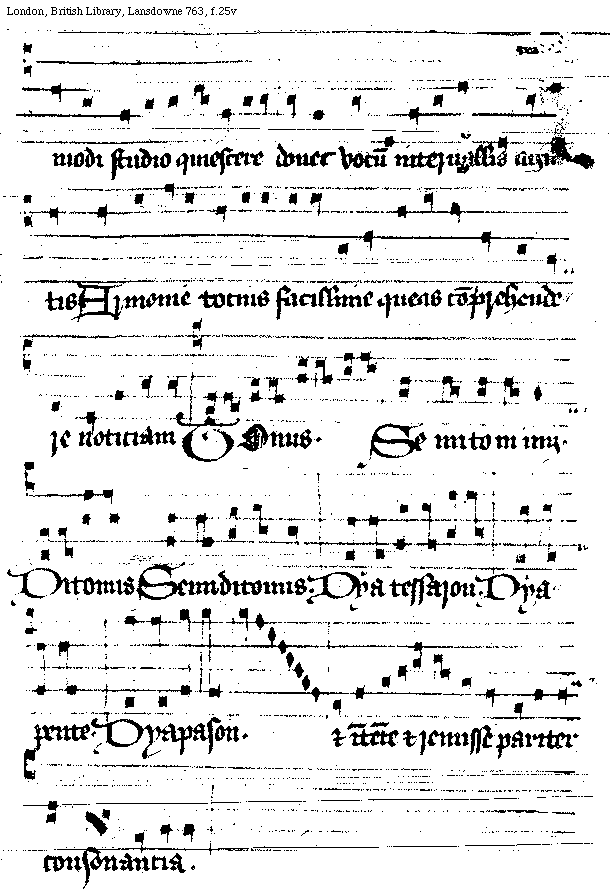 London, British Library, Lansdowne 763, f.25v
modi studio quiescere donec vocū interuallis
tis Armonie totius facillime queas cōprehende
re noticiam Tonus. Semitonium.
Ditonus Semiditonus: Dyatessaron: Dya
pente: Dyapason. & & remisse pariter
consonancia.